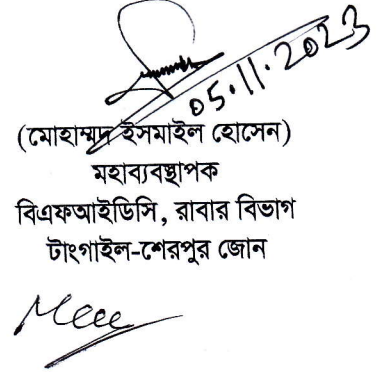 05.11.2023
(মোহাম্মদ ইসমাইল হোসেন)
মহাব্যবস্থাপক
বিএফআইডিসি, রাবার বিভাগ
টাংগাইল-শেরপুর জোন